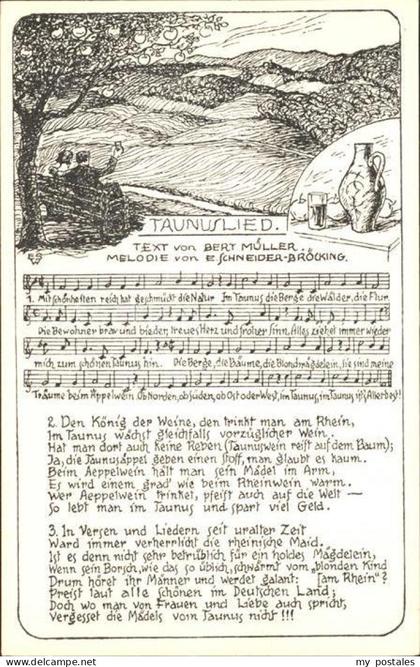 TAUNUSLIED.
TEXT von BERT MÜLLER.
MELODIE von E. SCHNEIDER-BRÖCKING.
ES
1. Mit Schönheiten reich hat geschmückt die Natur Im Taunus die Berge die Wälder, die Flur
Die Bewohner brav und bieder, treues Herz und froher Sinn. Alles ziehet immer wieder
mich zum schönen Taunus hin. Die Berge, die Bäume, die Blondmägdelein, sie sind meine
Träume beim Äppelwein Ob Norden, ob Süden, ob Ost oder West, im Taunus, im Taunus ist's Allerbest!
2. Den König der Weine, den trinkt man am Rhein,
Im Taunus wächst gleichfalls vorzüglicher Wein.
Hat man dort auch keine Reben (Taunuswein reift auf dem Baum);
Ja, die Taunusäppel geben einen Stoff, man glaubt es kaum.
Beim Aeppelwein hält man sein Mädel im Arm,
Es wird einem grad' wie beim Rheinwein warm.
Wer Aeppelwein trinket, pfeift auch auf die Welt —
So lebt man im Taunus und spart viel Geld.
3. In Versen und Liedern seit uralter Zeit
Ward immer verherrlicht die rheinische Maid.
Ist es denn nicht sehr betrüblich für ein holdes Mägdelein,
Wenn sein Borsch, wie das so üblich, schwärmt vom „blonden Kind
Drum höret ihr Männer und werdet galant: [am Rhein"?
Preist laut alle schönen im Deutschen Land;
Doch wo man von Frauen und Liebe auch spricht,
Vergesset die Mädels vom Taunus nicht!!!
www.my-postales.com